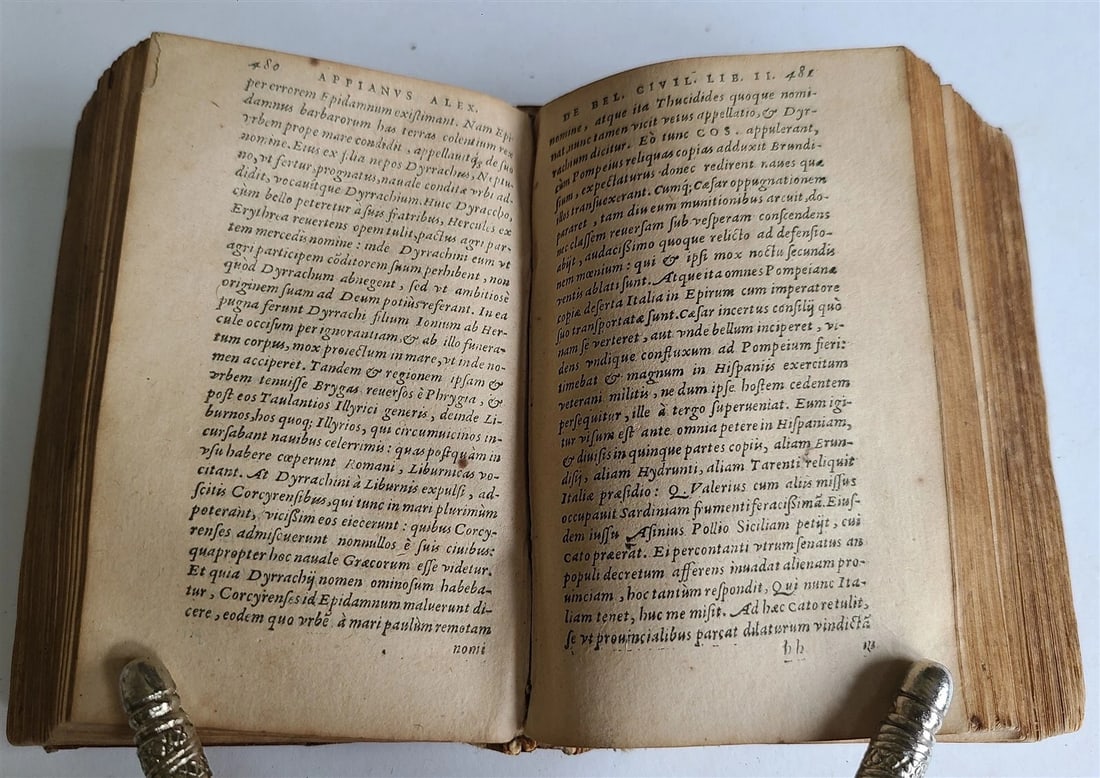 480 APPIANVS ALEX.
per errorem Epidamnum existimant. Nam Epi-
damnus barbarorum has terras colentium rex
vrbem prope mare condidit, appellauitq; de suo
nomine. Eius ex filia nepos Dyrrachus, Neptu-
no, vt fertur, prognatus, nauale conditæ vrbi ad-
didit, vocauitque Dyrrachium. Huic Dyraccho,
cùm bello peteretur à suis fratribus, Hercules ex
Erythrea reuertens opem tulit, pactus agri par-
tem mercedis nomine: inde Dyrrachini eum vt
agri participem cōditorem suum perhibent, non
quòd Dyrrachum abnegent, sed vt ambitiosè
originem suam ad Deum potiùs referant. In ea
pugna ferunt Dyrrachi filium Ionium ab Her-
cule occisum per ignorantiam, & ab illo funera-
tum corpus, mox proiectum in mare, vt inde no-
men acciperet. Tandem & regionem ipsam &
vrbem tenuisse Brygas reuersos è Phrygia, &
post eos Taulantios Illyrici generis, deinde Li-
burnos, hos quoq; Illyrios, qui circumuicinos in-
cursabant nauibus celerrimis: quas postquàm in
vsu habere cœperunt Romani, Liburnicas vo-
citant. At Dyrrachini à Liburnis expulsi, ad-
scitis Corcyrensibus, qui tunc in mari plurimùm
poterant, vicissim eos eiecerunt: quibus Corcy-
renses admiscuerunt nonnullos è suis ciuibus:
quapropter hoc nauale Græcorum esse videtur.
Et quia Dyrrachij nomen ominosum habeba-
tur, Corcyrenses id Epidamnum maluerunt di-
cere, eodem quo vrbē à mari paulùm remotam
nomi
DE BEL. CIVIL. LIB. II. 481
nomine, atque ita Thucidides quoque nomi-
nat. nunc tamen vicit vetus appellatio, & Dyr-
rachium dicitur. Eò tunc COS. appulerant,
cùm Pompeius reliquas copias adduxit Brundi-
sium, expectaturus donec redirent naues quæ
illos transuexerant. Cumq; Cæsar oppugnationem
pararet, tam diu eum munitionibus arcuit, do-
nec classem reuersam sub vesperam conscendens
abijt, audacißimo quoque relicto ad defensio-
nem mœnium: qui & ipsi mox noctu secundis
ventis ablati sunt. Atque ita omnes Pompeianæ
copiæ deserta Italia in Epirum cum imperatore
suo transportatæ sunt. Cæsar incertus consilij quò
nam se verteret, aut vnde bellum inciperet, vi-
dens vndique confluxum ad Pompeium fieri:
timebat & magnum in Hispaniis exercitum
veterani militis, ne dum ipse hostem cedentem
persequitur, ille à tergo superueniat. Eum igi-
tur visum est ante omnia petere in Hispaniam,
& diuisis in quinque partes copiis, aliam Brun-
disij, aliam Hydrunti, aliam Tarenti reliquit
Italiæ præsidio: Q. Valerius cum aliis missus
occupauit Sardiniam frumenti feracißimā. Eius-
dem iussu Asinius Pollio Siciliam petijt, cui
Cato præerat. Ei percontanti vtrum senatus an
populi decretum afferens inuadat alienam pro-
uinciam, hoc tantùm respondit, Qui nunc Ita-
liam tenet, huc me misit. Ad hæc Cato retulit,
se vt prouincialibus parcat dilaturum vindictā
hh